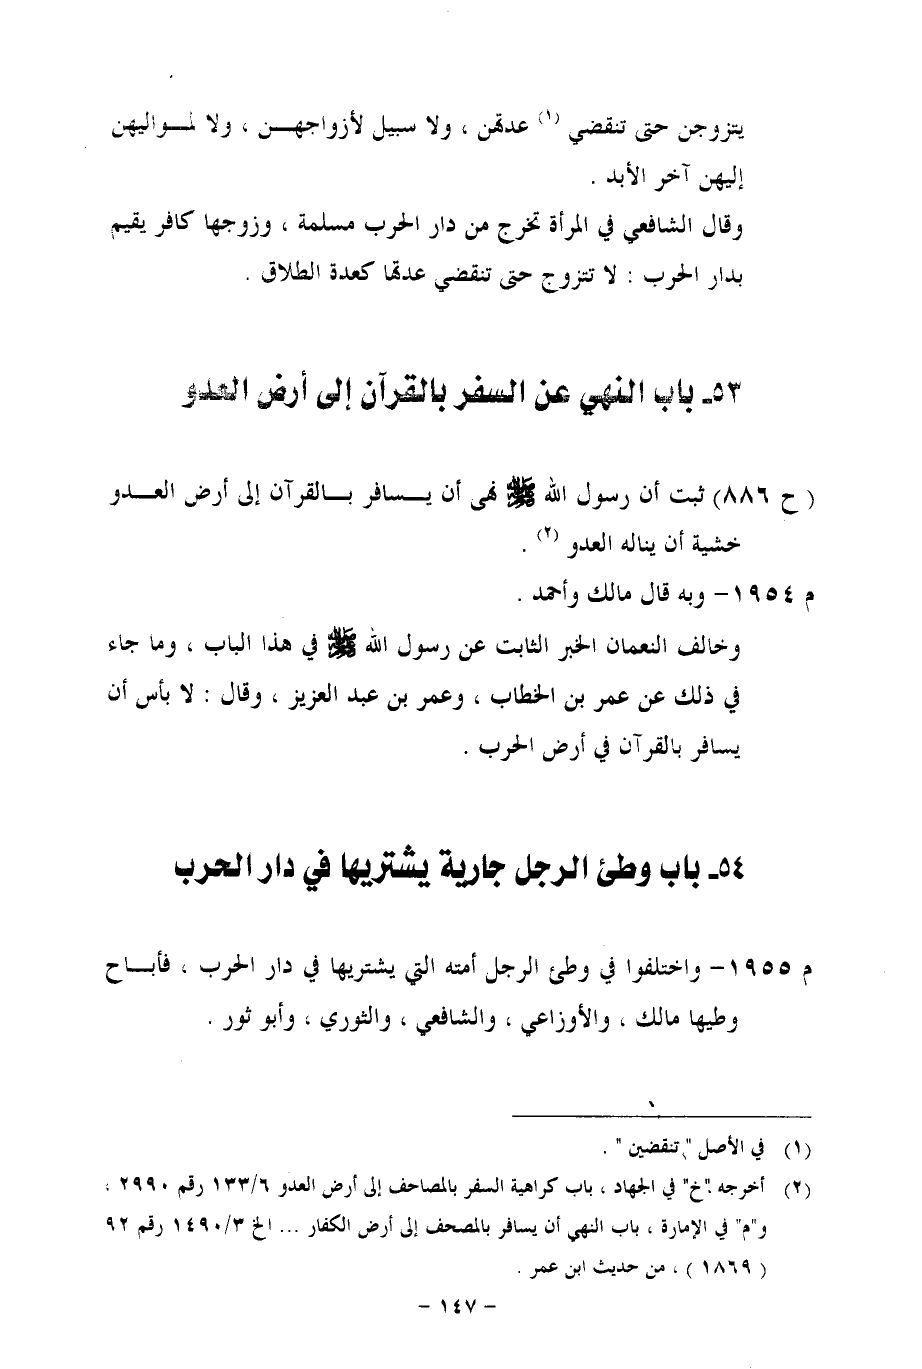 يتزوجن حتى تنقضي (١) عدتهن ، ولا سبيل لأزواجهـــن ، ولا لمـــواليهن
إليهن آخر الأبد .
وقال الشافعي في المرأة تخرج من دار الحرب مسلمة ، وزوجها كافر يقيم
بدار الحرب : لا تتزوج حتى تنقضي عدتها كعدة الطلاق .
٥٣ـ باب النهي عن السفر بالقرآن إلى أرض العدو
( ح ٨٨٦) ثبت أن رسول الله ﷺ نهى أن يـــسافر بـــالقرآن إلى أرض العـــدو
خشية أن يناله العدو (٢) .
م ١٩٥٤ – وبه قال مالك وأحمد .
وخالف النعمان الخبر الثابت عن رسول الله ﷺ في هذا الباب ، وما جاء
في ذلك عن عمر بن الخطاب ، وعمر بن عبد العزيز ، وقال : لا بأس أن
يسافر بالقرآن في أرض الحرب .
٥٤ـ باب وطئ الرجل جارية يشتريها في دار الحرب
م ١٩٥٥ – واختلفوا في وطئ الرجل أمته التي يشتريها في دار الحرب ، فأبـــاح
وطيها مالك ، والأوزاعي ، والشافعي ، والثوري ، وأبو ثور .
(١) في الأصل "تنقضين" .
(٢) أخرجه "خ" في الجهاد ، باب كراهية السفر بالمصاحف إلى أرض العدو ١٣٣/٦ رقم ٢٩٩٠ ،
و"م" في الإمارة ، باب النهي أن يسافر بالمصحف إلى أرض الكفار ... الخ ١٤٩٠/٣ رقم ٩٢
( ١٨٦٩ ) ، من حديث ابن عمر .
– ١٤٧ –